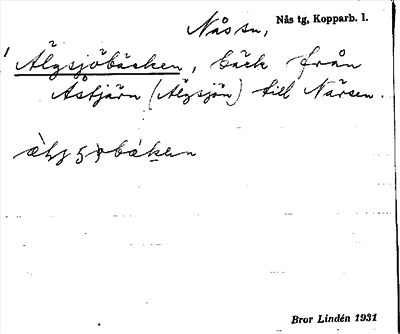 Nås sn, Nås tg, Kopparb. l.
Älgsjöbäcken, bäck från
Åstjärn (Älgsjön) till Närsen.
Bror Lindén 1931